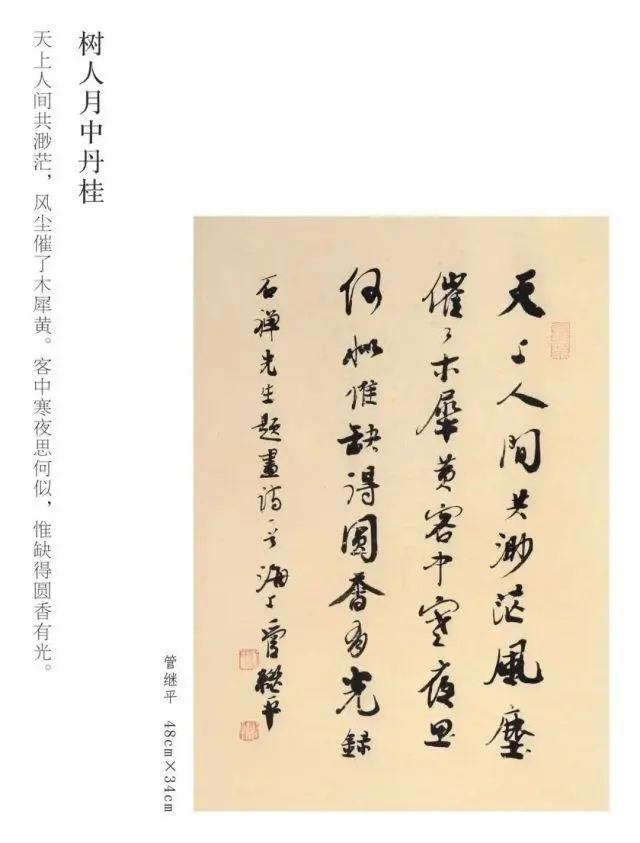 树人月中丹桂
天上人间共渺茫，风尘催了木犀黄。客中寒夜思何似，惟缺得圆香有光。
天上人間共渺茫風塵
催了木犀黄客中寒夜思
何似惟缺得圓香有光錄
石禅先生題畫詩一首海上管继平
管继平 48cm×34cm